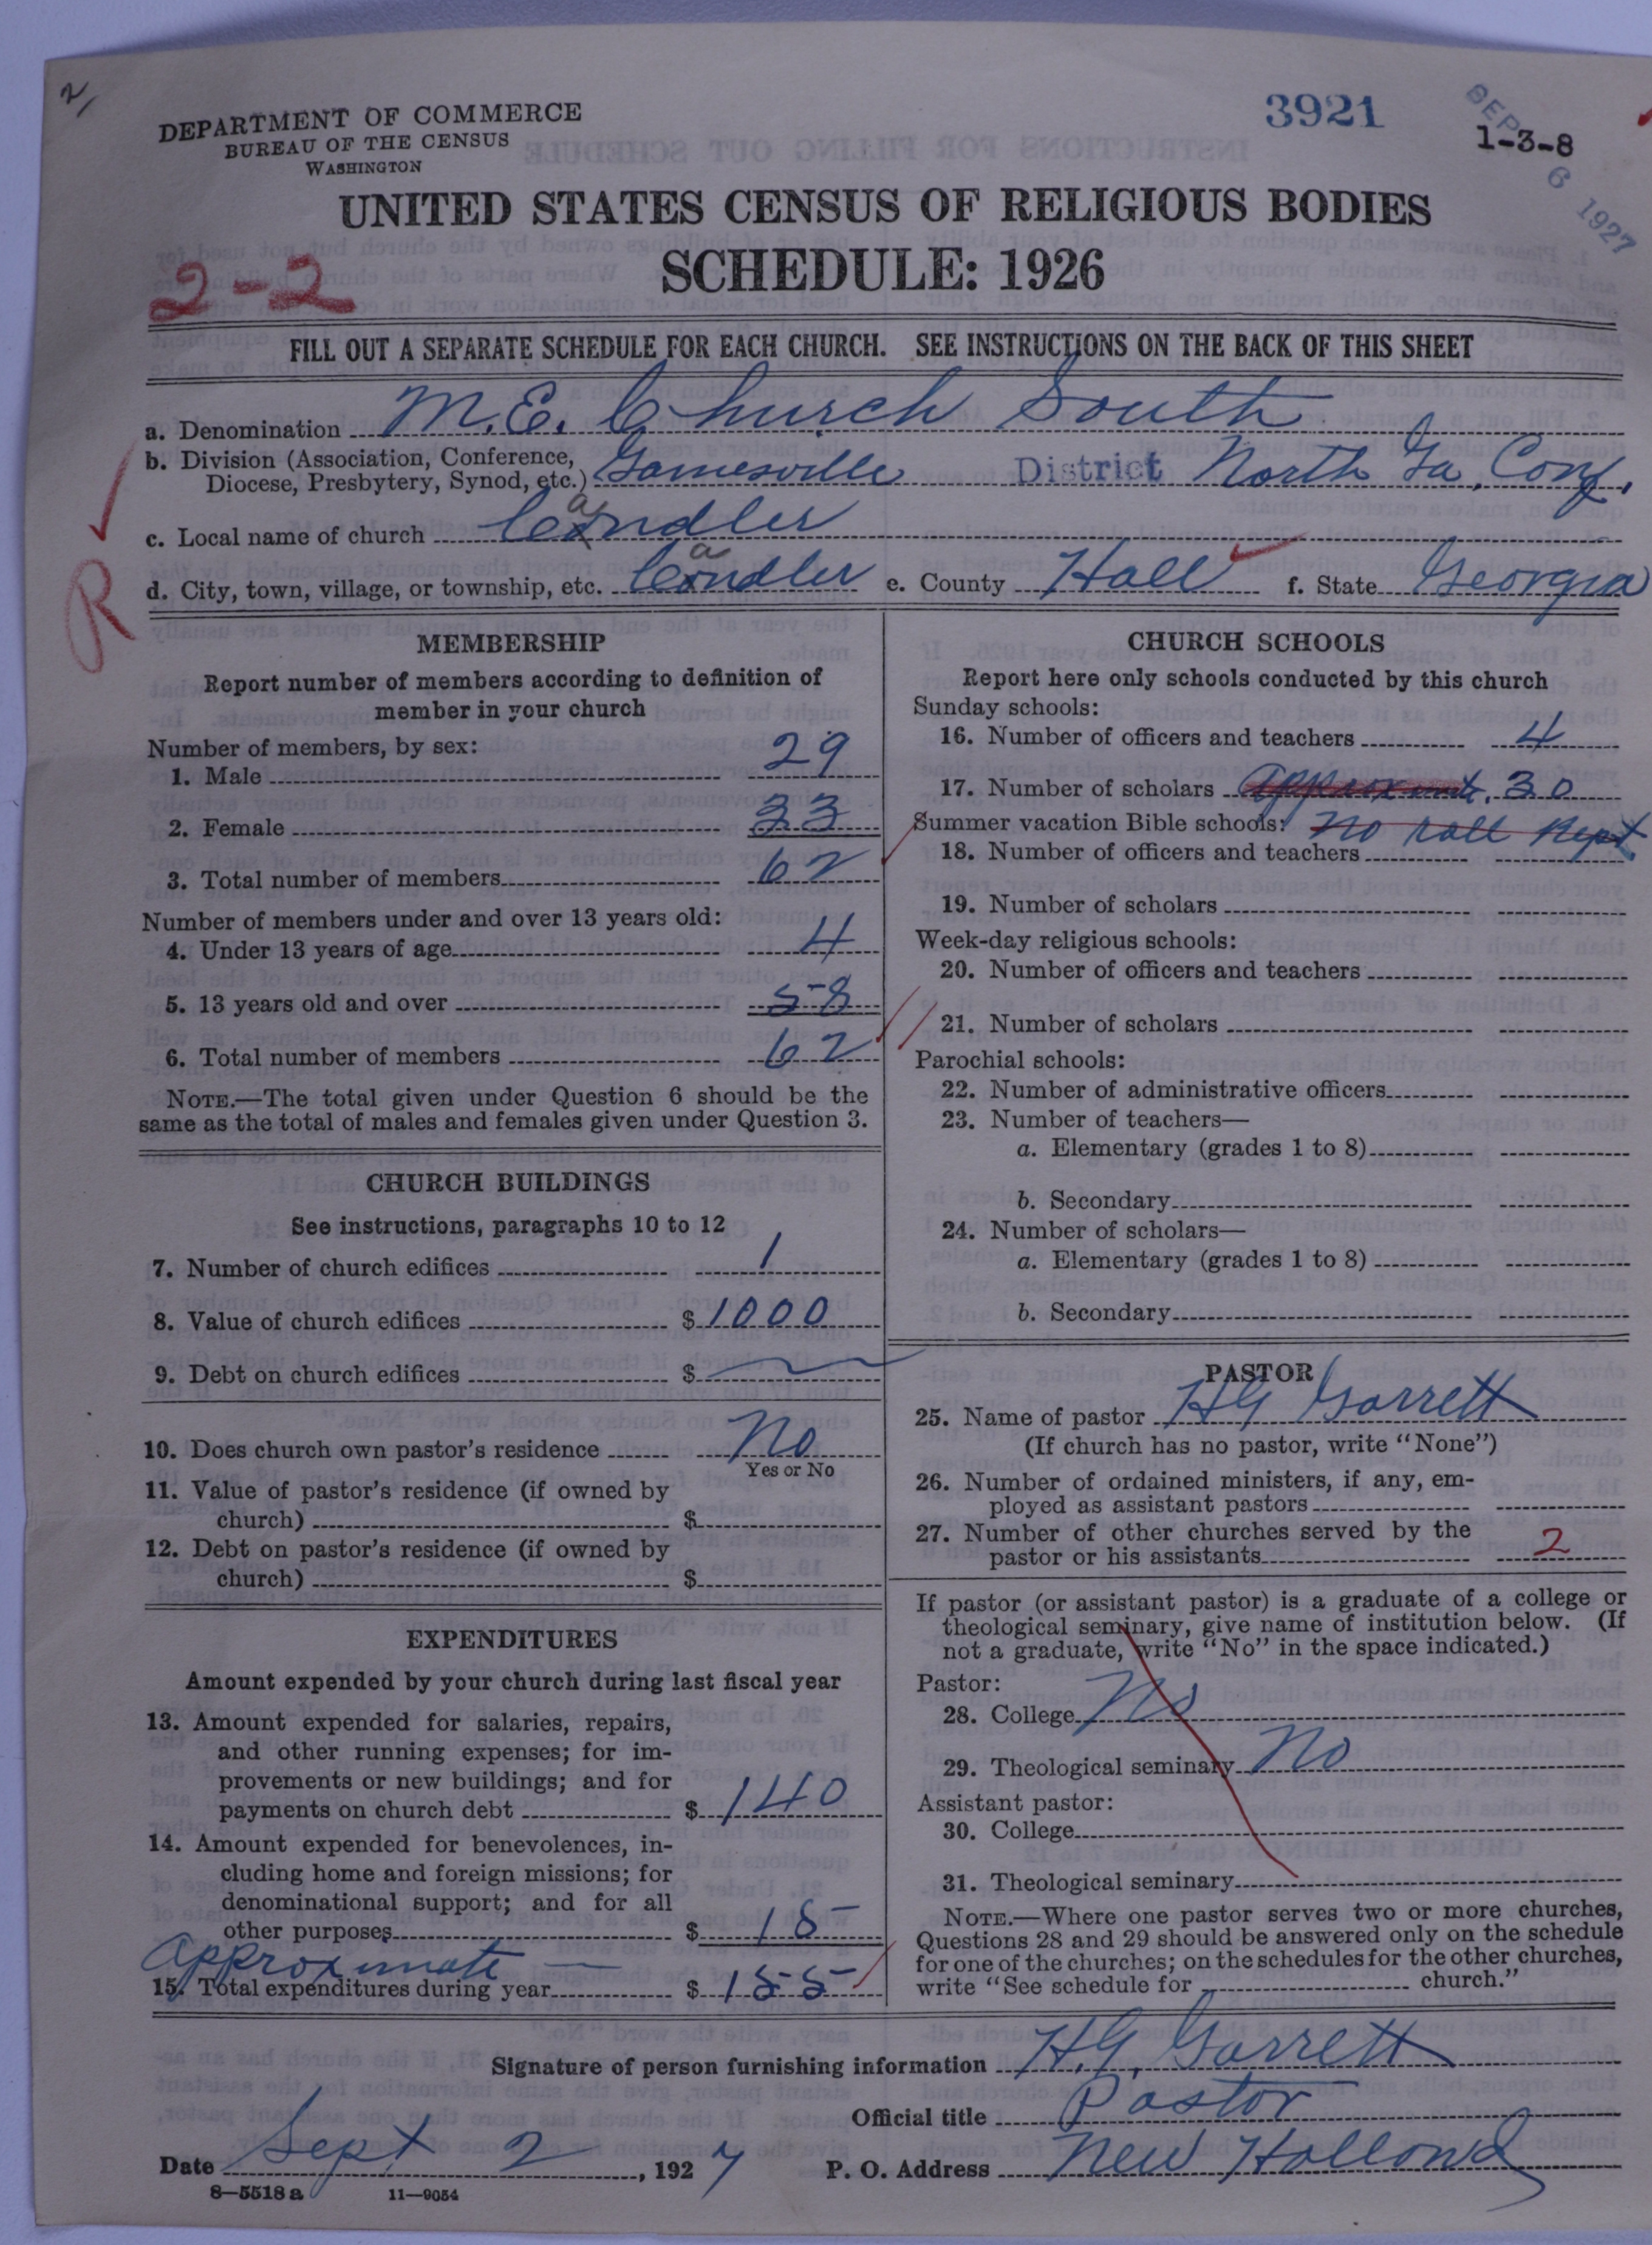 2
DEPARTMENT OF COMMERCE
BUREAU OF THE CENSUS
WASHINGTON
3921
SEP 6 1927
1-3-8
UNITED STATES CENSUS OF RELIGIOUS BODIES
SCHEDULE: 1926
2-2
FILL OUT A SEPARATE SCHEDULE FOR EACH CHURCH. SEE INSTRUCTIONS ON THE BACK OF THIS SHEET
a. Denomination M.E. Church South
b. Division (Association, Conference,
Diocese, Presbytery, Synod, etc.) Gainesville District North Ga. Conf.
c. Local name of church Candler
d. City, town, village, or township, etc. Candler e. County Hall f. State Georgia
R
MEMBERSHIP
Report number of members according to definition of
member in your church
Number of members, by sex:
1. Male 29
2. Female 33
3. Total number of members 62
Number of members under and over 13 years old:
4. Under 13 years of age 4
5. 13 years old and over 58
6. Total number of members 62
NOTE.—The total given under Question 6 should be the
same as the total of males and females given under Question 3.
CHURCH BUILDINGS
See instructions, paragraphs 10 to 12
7. Number of church edifices 1
8. Value of church edifices $ 1000
9. Debt on church edifices $
10. Does church own pastor's residence No
Yes or No
11. Value of pastor's residence (if owned by
church) $
12. Debt on pastor's residence (if owned by
church) $
EXPENDITURES
Amount expended by your church during last fiscal year
13. Amount expended for salaries, repairs,
and other running expenses; for im-
provements or new buildings; and for
payments on church debt $ 140
14. Amount expended for benevolences, in-
cluding home and foreign missions; for
denominational support; and for all
other purposes $ 15
Approximate
15. Total expenditures during year $ 155
CHURCH SCHOOLS
Report here only schools conducted by this church
Sunday schools:
16. Number of officers and teachers 4
17. Number of scholars approximate. 30
Summer vacation Bible schools: no roll kept
18. Number of officers and teachers
19. Number of scholars
Week-day religious schools:
20. Number of officers and teachers
21. Number of scholars
Parochial schools:
22. Number of administrative officers
23. Number of teachers—
a. Elementary (grades 1 to 8)
b. Secondary
24. Number of scholars—
a. Elementary (grades 1 to 8)
b. Secondary
PASTOR
25. Name of pastor HG Garrett
(If church has no pastor, write "None")
26. Number of ordained ministers, if any, em-
ployed as assistant pastors
27. Number of other churches served by the
pastor or his assistants 2
If pastor (or assistant pastor) is a graduate of a college or
theological seminary, give name of institution below. (If
not a graduate, write "No" in the space indicated.)
Pastor:
28. College No
29. Theological seminary No
Assistant pastor:
30. College
31. Theological seminary
NOTE.—Where one pastor serves two or more churches,
Questions 28 and 29 should be answered only on the schedule
for one of the churches; on the schedules for the other churches,
write "See schedule for church."
Signature of person furnishing information H.G. Garrett
Official title Pastor
Date Sept 2, 1927 P. O. Address New Holland
8—5518 a 11—9054